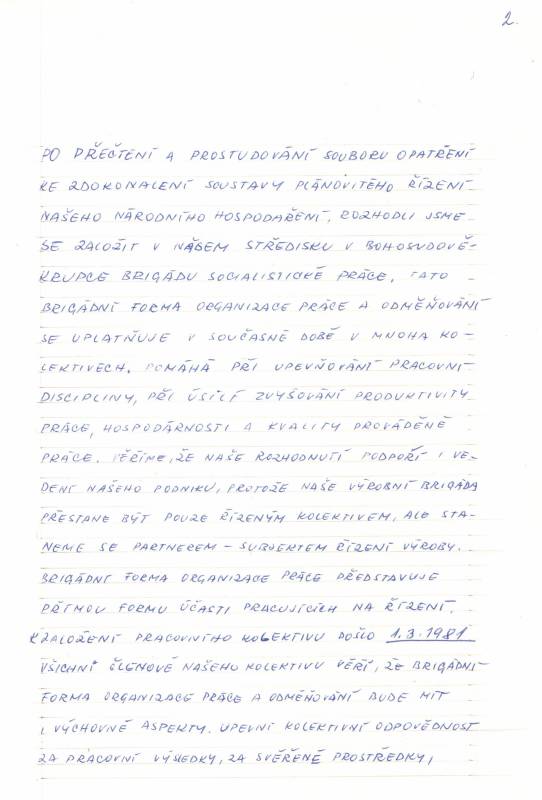 2.
PO PŘEČTENÍ A PROSTUDOVÁNÍ SOUBORU OPATŘENÍ
KE ZDOKONALENÍ SOUSTAVY PLÁNOVITÉHO ŘÍZENÍ
NAŠEHO NÁRODNÍHO HOSPODAŘENÍ, ROZHODLI JSME
SE ZALOŽIT V NAŠEM STŘEDISKU V BOHOSUDOVĚ-
KRUPCE BRIGÁDU SOCIALISTICKÉ PRÁCE. TATO
BRIGÁDNÍ FORMA ORGANIZACE PRÁCE A ODMĚŇOVÁNÍ
SE UPLATŇUJE V SOUČASNÉ DOBĚ V MNOHA KO-
LEKTIVECH. POMÁHÁ PŘI UPEVŇOVÁNÍ PRACOVNÍ
DISCIPLINY, PŘI ÚSILÍ ZVYŠOVÁNÍ PRODUKTIVITY
PRÁCE, HOSPODÁRNOSTI A KVALITY PROVÁDĚNÉ
PRÁCE. VĚŘÍME, ŽE NAŠE ROZHODNUTÍ PODPOŘÍ I VE-
DENÍ NAŠEHO PODNIKU, PROTOŽE NAŠE VÝROBNÍ BRIGÁDA
PŘESTANE BÝT POUZE ŘÍZENÝM KOLEKTIVEM, ALE STA-
NEME SE PARTNEREM - SUBJEKTEM ŘÍZENÍ VÝROBY.
BRIGÁDNÍ FORMA ORGANIZACE PRÁCE PŘEDSTAVUJE
PŘÍMOU FORMU ÚČASTI PRACUJÍCÍCH NA ŘÍZENÍ.
K ZALOŽENÍ PRACOVNÍHO KOLEKTIVU DOŠLO 1.3.1981
VŠICHNI ČLENOVÉ NAŠEHO KOLEKTIVU VĚŘÍ, ŽE BRIGÁDNÍ
FORMA ORGANIZACE PRÁCE A ODMĚŇOVÁNÍ BUDE MÍT
I VÝCHOVNÉ ASPEKTY. UPEVNÍ KOLEKTIVNÍ ODPOVĚDNOST
ZA PRACOVNÍ VÝSLEDKY, ZA SVĚŘENÉ PROSTŘEDKY,